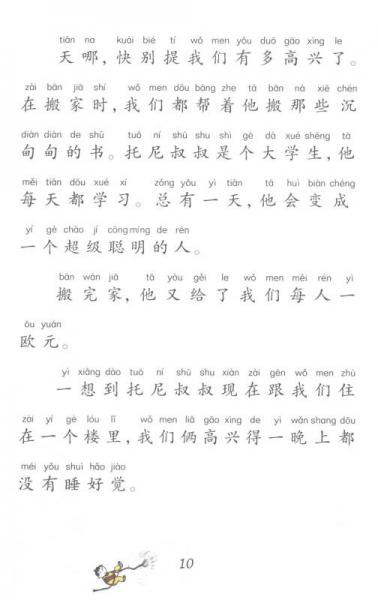 tiān na kuài bié tí wǒ men yǒu duō gāo xìng le
天哪，快别提我们有多高兴了。
zài bān jiā shí wǒ men dōu bāng zhe tā bān nà xiē chén
在搬家时，我们都帮着他搬那些沉
diàn diàn de shū tuō ní shū shu shì gè dà xué shēng tā
甸甸的书。托尼叔叔是个大学生，他
měi tiān dōu xué xí zǒng yǒu yì tiān tā huì biàn chéng
每天都学习。总有一天，他会变成
yí gè chāo jí cōng míng de rén
一个超级聪明的人。
bān wán jiā tā yòu gěi le wǒ men měi rén yì
搬完家，他又给了我们每人一
ōu yuán
欧元。
yì xiǎng dào tuō ní shū shu xiàn zài gēn wǒ men zhù
一想到托尼叔叔现在跟我们住
zài yí gè lóu lǐ wǒ men liǎ gāo xìng de yì wǎn shang dōu
在一个楼里，我们俩高兴得一晚上都
méi yǒu shuì hǎo jiào
没有睡好觉。
10